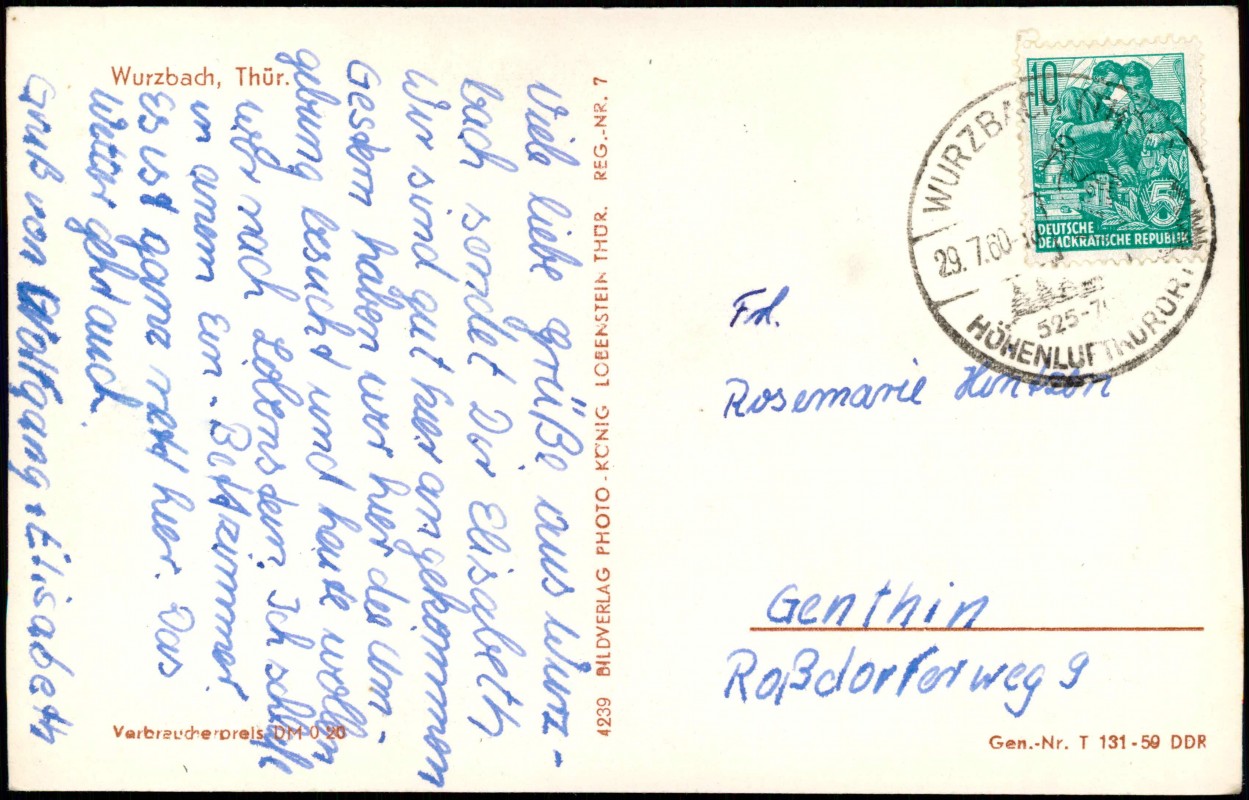 Wurzbach, Thür.
Viele liebe Grüße aus Wurz-
bach sendet Dir Elisabeth
Wir sind gut hier angekommen
Gestern haben wir hier die Um-
gebung besucht und heute wollen
wir nach Lobenstein. Ich schlafe
in einem Ein-Bettzimmer
Es ist ganz nett hier. Das
Wetter geht auch.
Gruß von Wolfgang + Elisabeth
Verbraucherpreis DM 0 20
4239 BILDVERLAG PHOTO-KÖNIG LOBENSTEIN THÜR. REG.-NR. 7
10
5
DEUTSCHE
DEMOKRATISCHE REPUBLIK
WURZBACH
29.7.60
525-7
HÖHENLUFTKURORT
Frl.
Rosemarie
Genthin
Roßdorferweg 9
Gen.-Nr. T 131-59 DDR